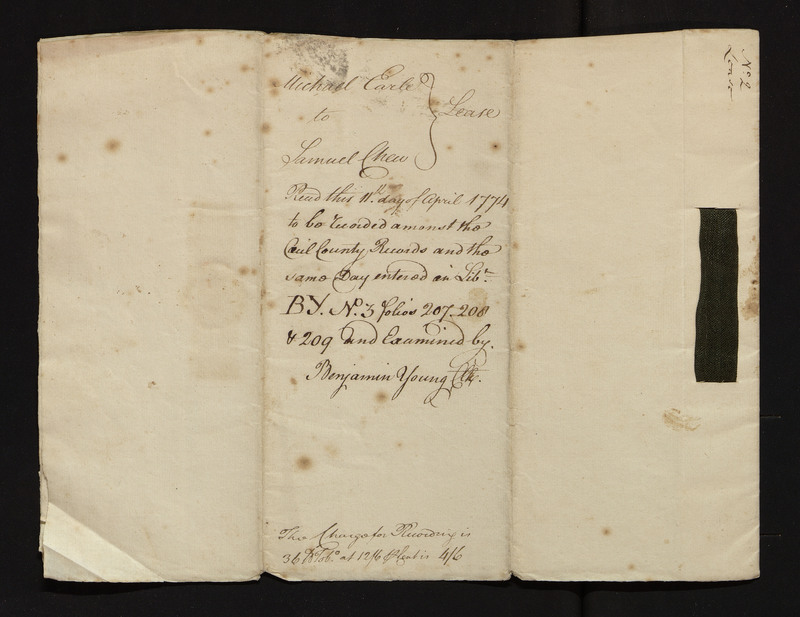 Michael Earle
to
Lease
Samuel Chew
Read this 11th day of April 1774
to be recorded amonst the
Cecil County Records and the
same Day entered in Libr.
BY. No. 3 folios 207. 208
& 209 and Examined by.
Benjamin Young Clk.
The Charge for Recording is
36 lb Tobo. at 12/6 P Cent is 4/6
No. 2
Lease